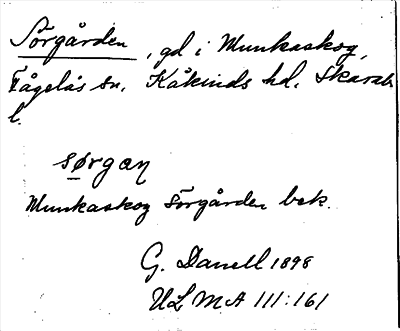 Sörgården, gd i Munkaskog,
Fågelås sn. Kåkinds hd. Skarab.
l.
sørgan
Munkaskog Sörgården bek.
G. Danell 1898
ULMA 111:161